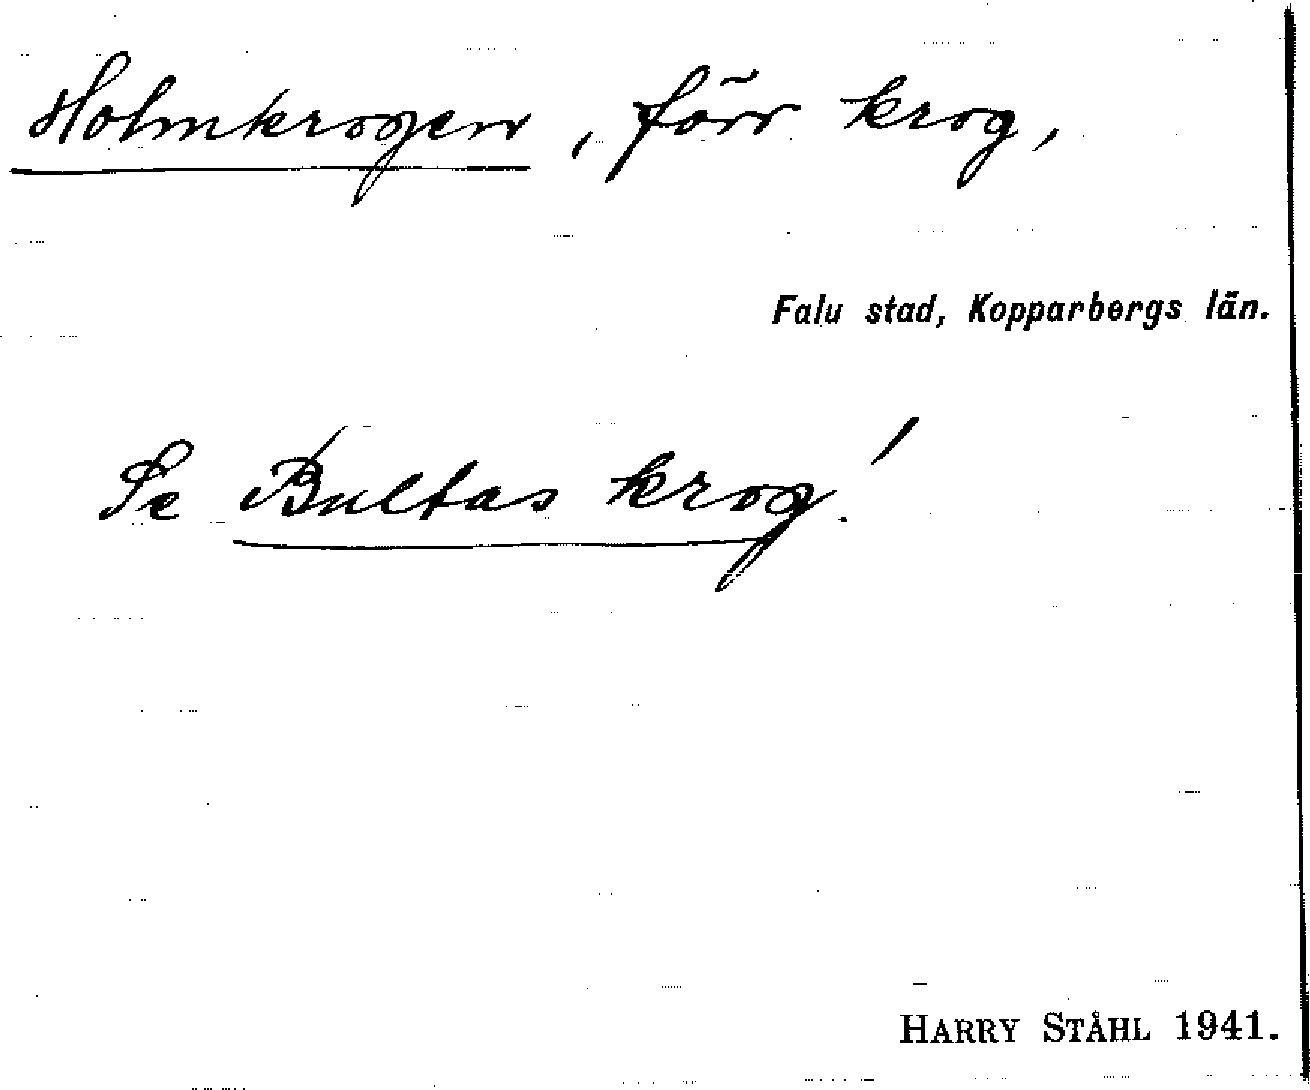 Holmkrogen, förr krog,
Falu stad, Kopparbergs län.
Se Bultas krog!
HARRY STÅHL 1941.